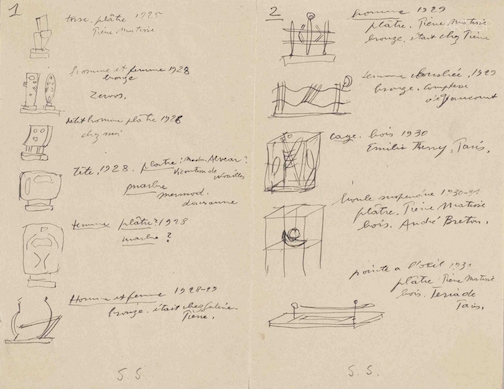 1
torse. plâtre 1925
Pierre Matisse
homme et femme 1928
bronze
Zervos.
petit homme plâtre 1926
chez moi
Tête. 1928. plâtre
Vicomtesse de Noailles
marbre
femme plâtre 1928
marbre ?
Homme et femme 1928-29
bronze. était chez Galerie
Pierre.
S S.
2
homme 1929
plâtre. Pierre Matisse
bronze. était chez Pierre
femme couchée. 1929
bronze.
cage. bois 1930
Emilio Terry. Paris.
boule suspendue 1930-31
plâtre. Pierre Matisse
bois. André Breton.
pointe à l'oeil 1931
plâtre. Pierre Matisse
bois. Teriade
Paris.
S. S.